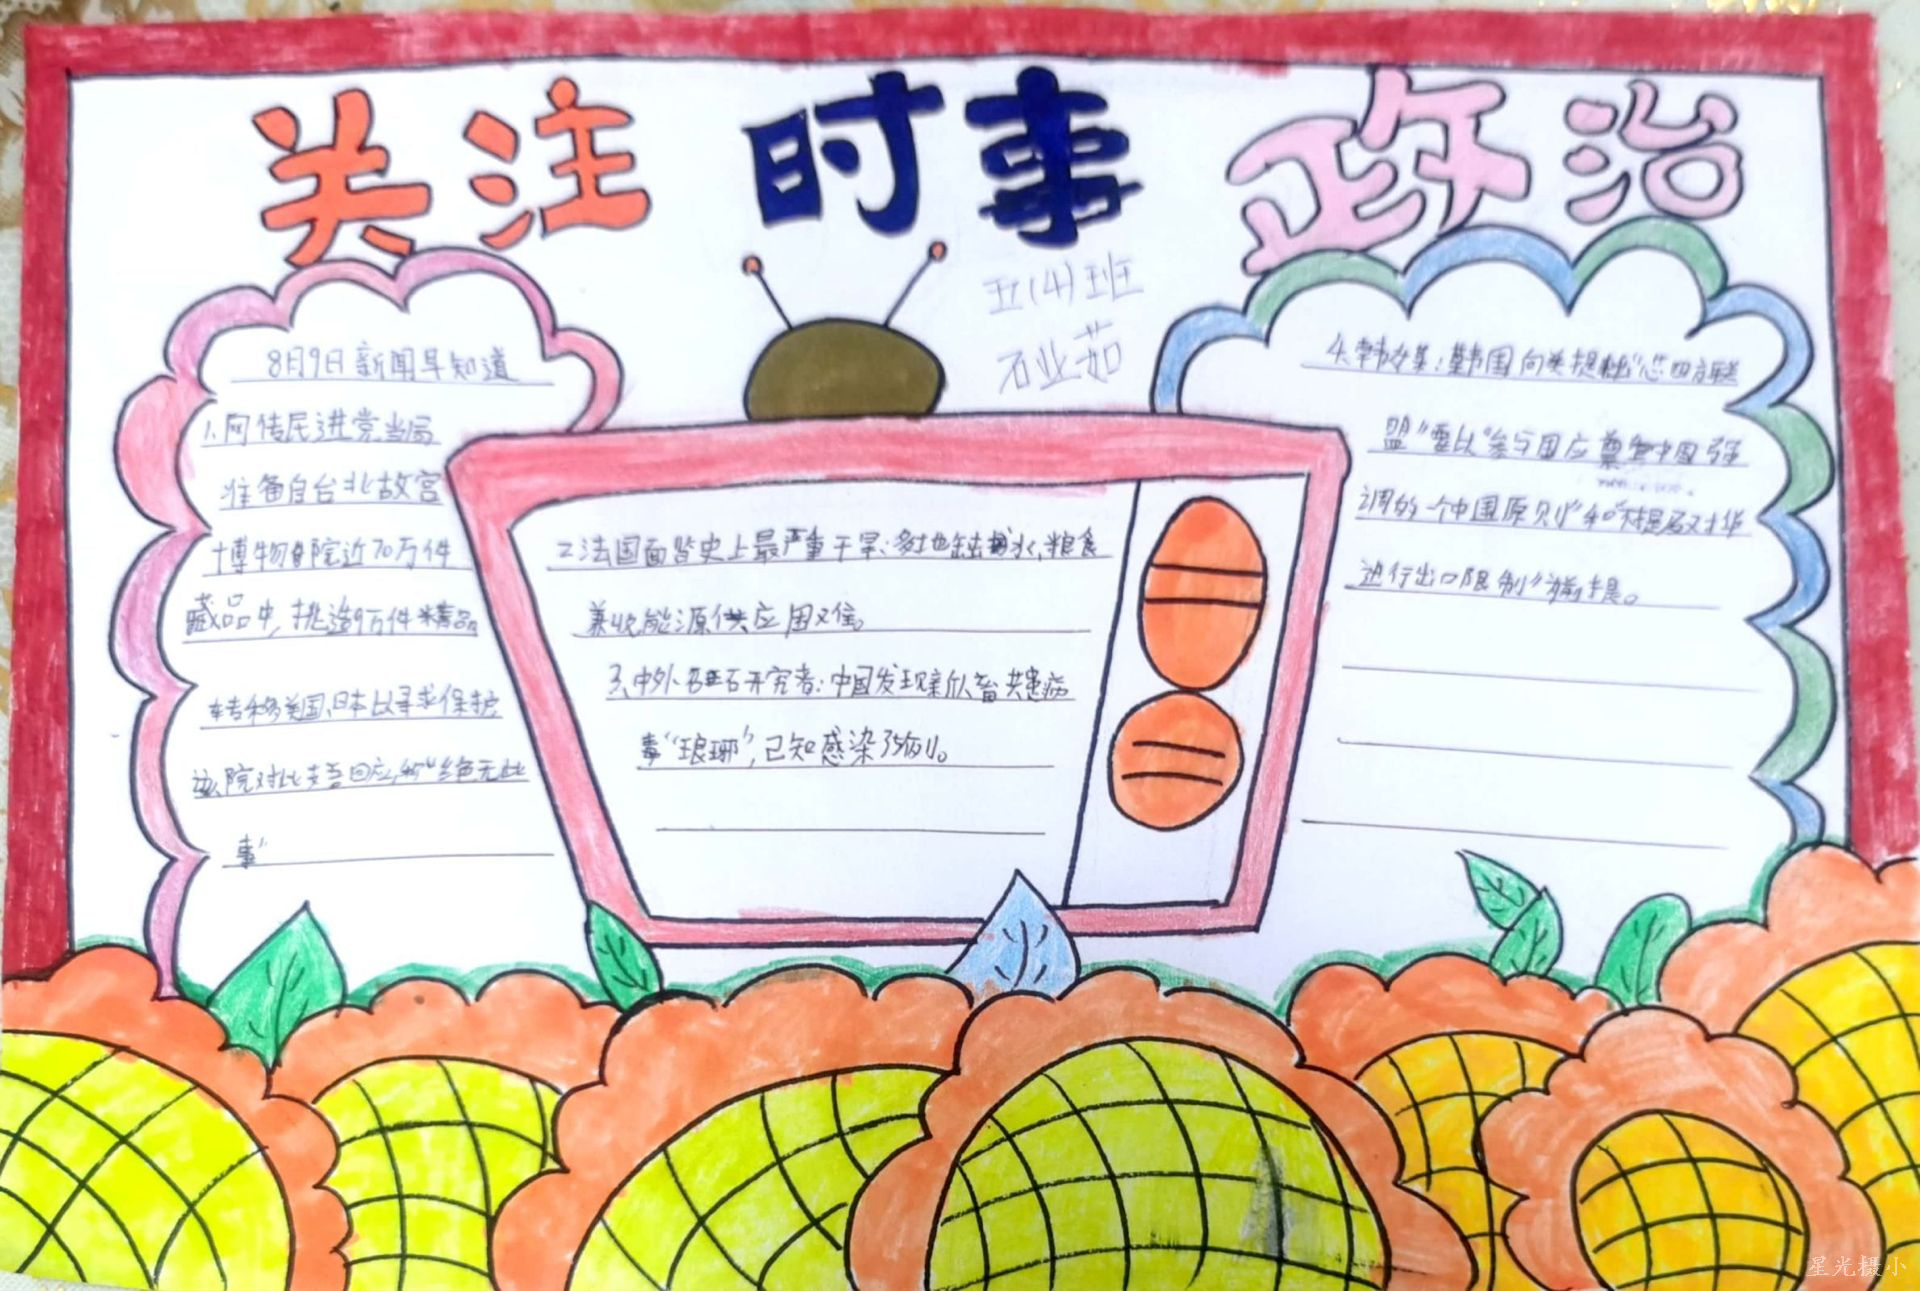 关注 时事 政治
五(4)班
石业茹
8月9日新闻早知道
1、网传民进党当局
准备自台北故宫
博物院近70万件
藏品中,挑选9万件精品
转移美国、日本以寻求保护
该院对此支吾回应,称“绝无此
事”
2、法国面临史上最严重干旱:多地缺水,粮食
兼收能源供应困难。
3、中外研究者:中国发现新人畜共患病
毒“琅琊”,已知感染35例。
4、韩媒:韩国向美提出“芯四方联
盟”要以“参与国应尊重中国强
调的一个中国原则”和“不提及对华
进行出口限制”为前提。
星光摄小